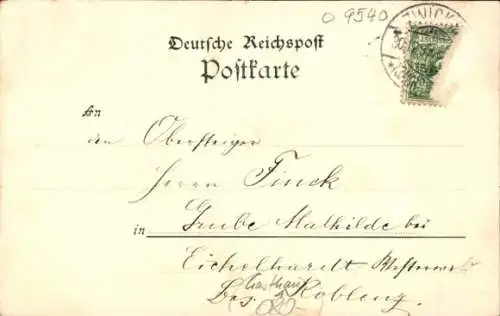 0 9540
ZWICK
Deutsche Reichspost
Postkarte
An
den Obersteiger
Herrn Finck
in Grube Mathilde bei
Eichelhardt Westerwald
Gasthaus
Bez. Koblenz.